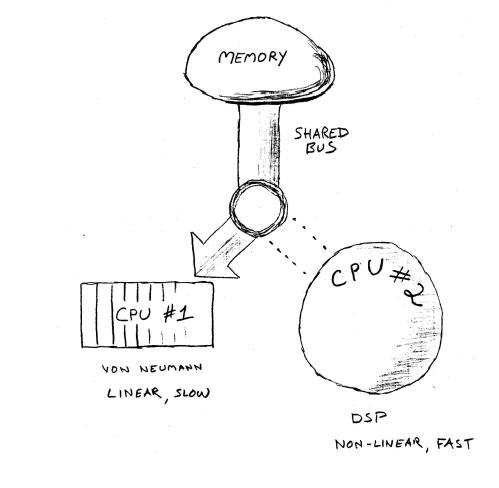 MEMORY
SHARED
BUS
CPU #1
CPU #2
VON NEUMANN
LINEAR, SLOW
DSP
NON-LINEAR, FAST